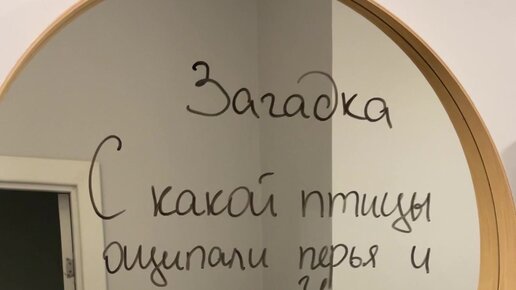 Загадка
С какой птицы
ощипали перья и